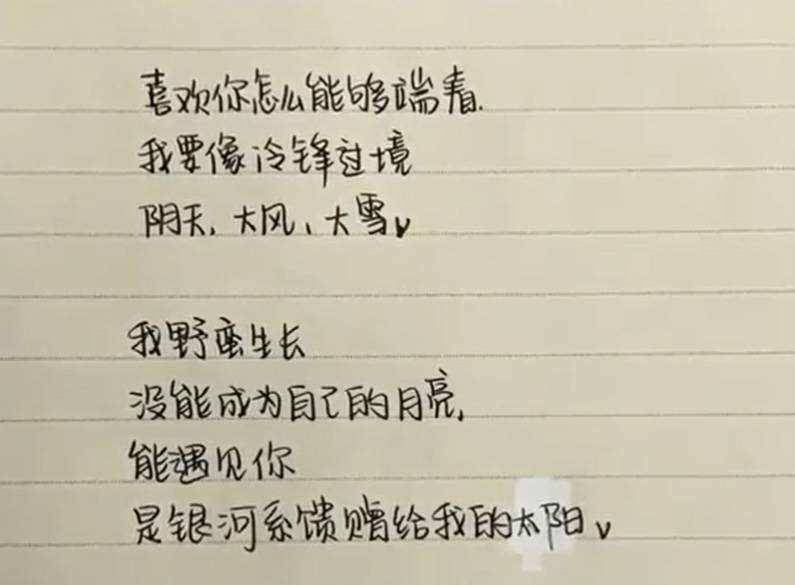 喜欢你怎么能够端着.
我要像冷锋过境
阴天,大风、大雪
我野蛮生长
没能成为自己的月亮,
能遇见你
是银河系馈赠给我的太阳